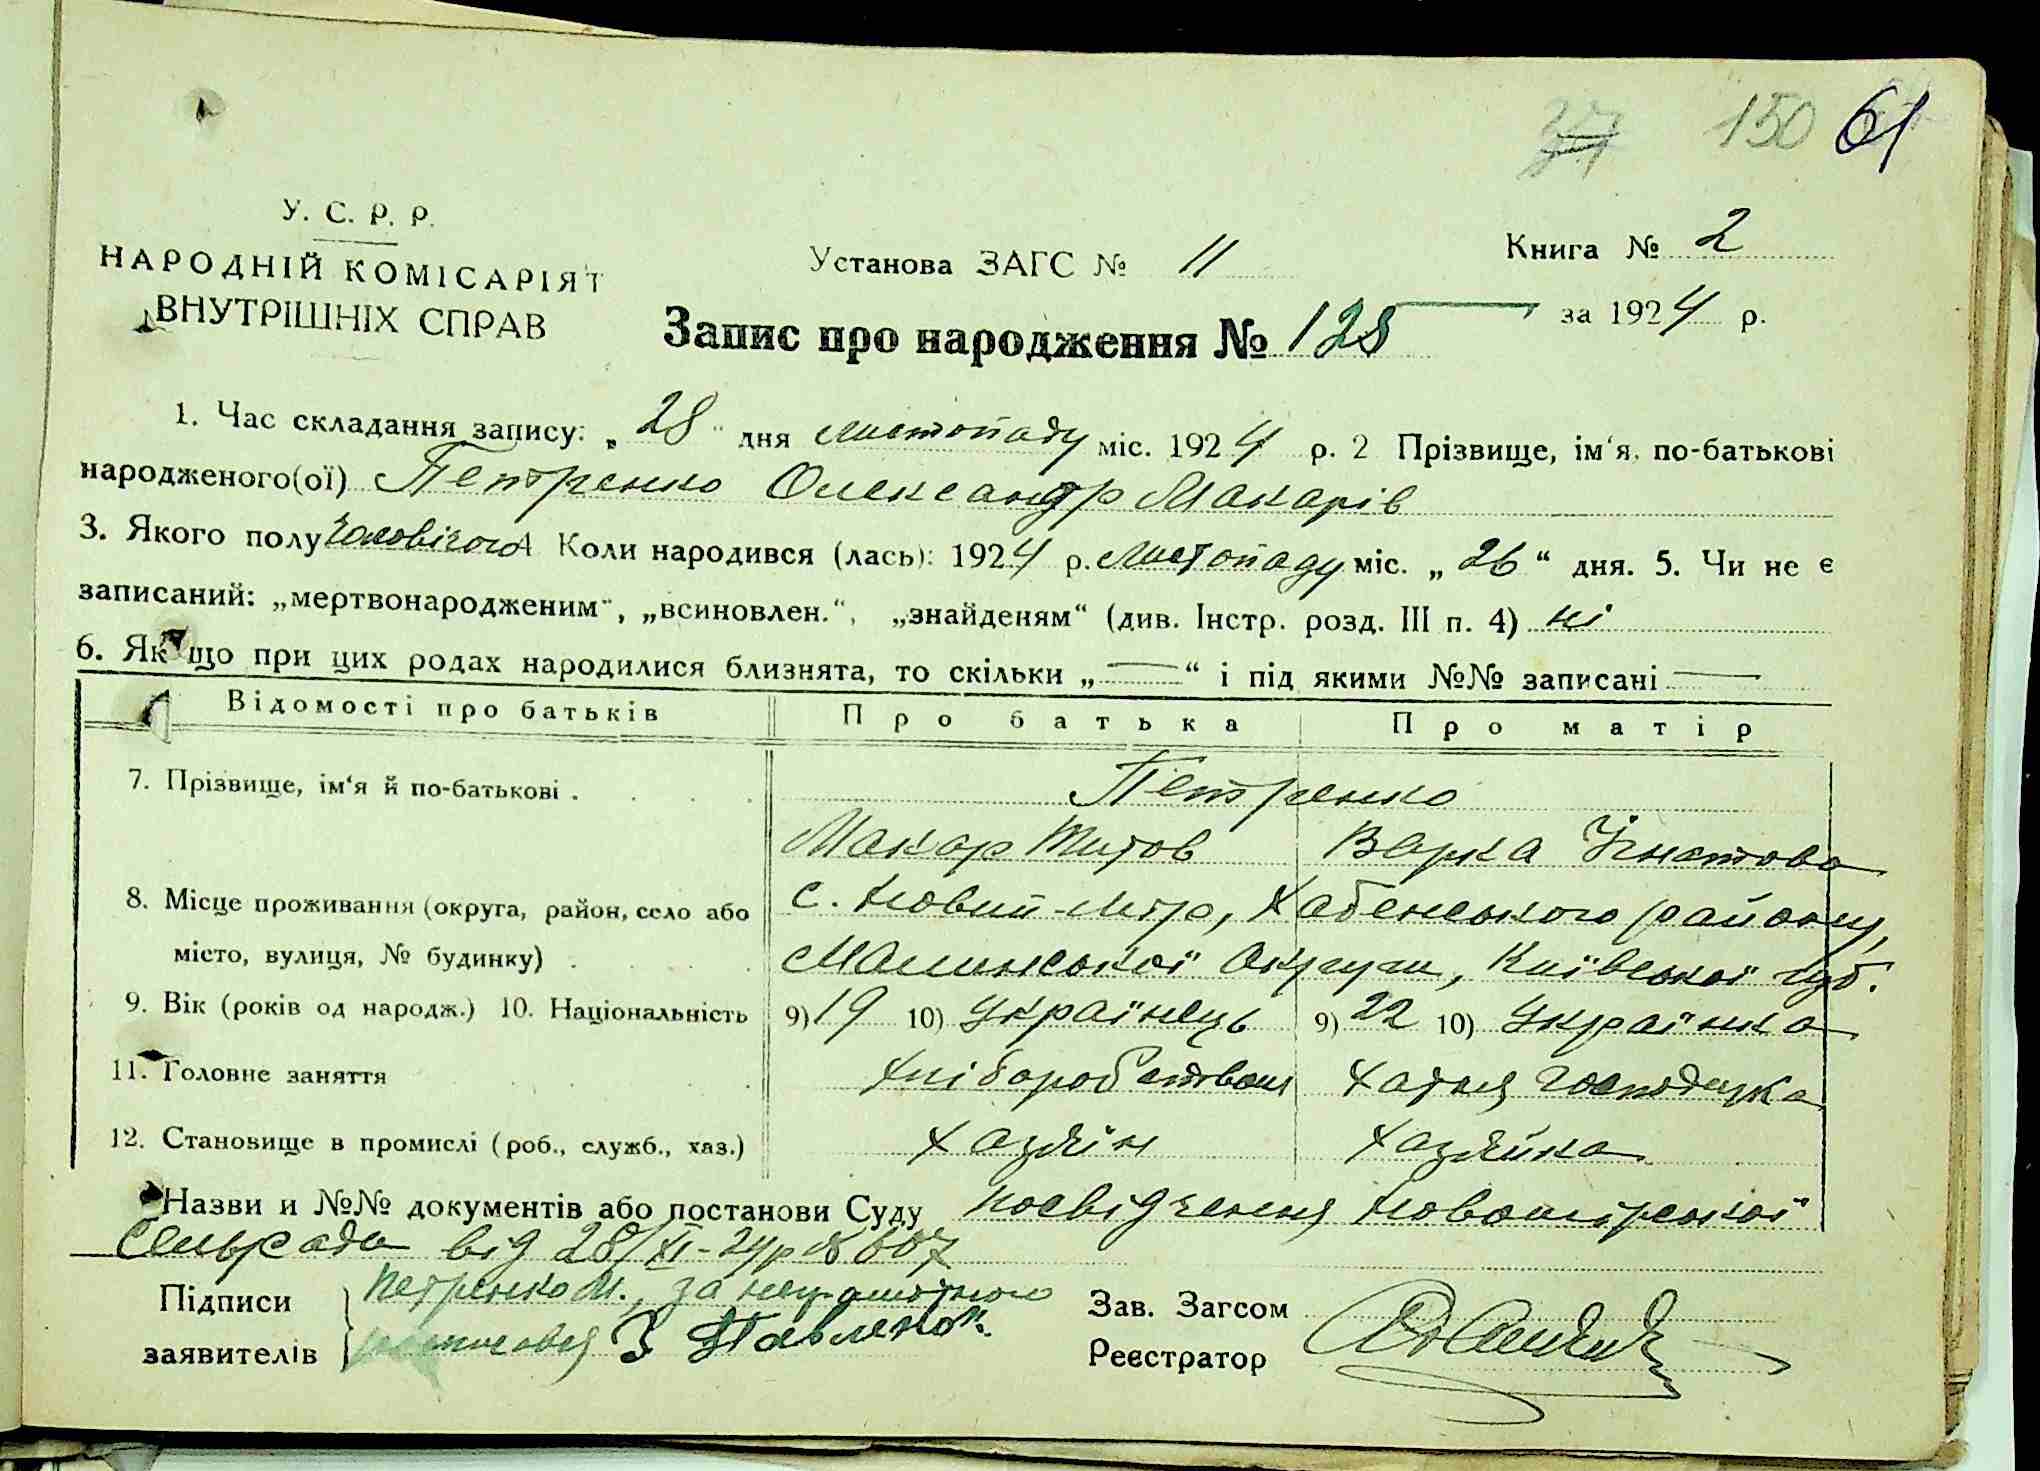 150 61
У. С. Р. Р.
НАРОДНІЙ КОМІСАРІЯТ
ВНУТРІШНІХ СПРАВ
Установа ЗАГС № 11
Книга № 2
за 1924 р.
Запис про народження № 128
1. Час складання запису: „28“ дня листопаду міс. 1924 р. 2 Прізвище, ім‘я, по-батькові
народженого(ої) Петренко Олександр Макарів
3. Якого полу чоловічого 4 Коли народився (лась): 1924 р. листопаду міс. „26“ дня. 5. Чи не є
записаний: „мертвонародженим“, „всиновлен.“, „знайденям“ (див. Інстр. розд. III п. 4) ні
6. Якщо при цих родах народилися близнята, то скільки „—“ і під якими №№ записані —
Відомості про батьків Про батька Про матір
7. Прізвище, ім‘я й по-батькові . Петренко
Макар Титов Варка Ігнатова
8. Місце проживання (округа, район, село або с. Новий-Мир, Хабенського району,
місто, вулиця, № будинку) . Малинської округи, Київської губ.
9. Вік (років од народж.) 10. Національність 9) 19 10) Українець 9) 22 10) Українка
11. Головне заняття хліборобством хатня господарка
12. Становище в промислі (роб., служб., хаз.) хазяїн хазяйка
Назви и №№ документів або постанови Суду посвідчення Новомирської
сельради від 28/XI-24р № 607
Підписи Петренко М., за неграмотного
заявителів З Павленок
Зав. Загсом
Реєстратор